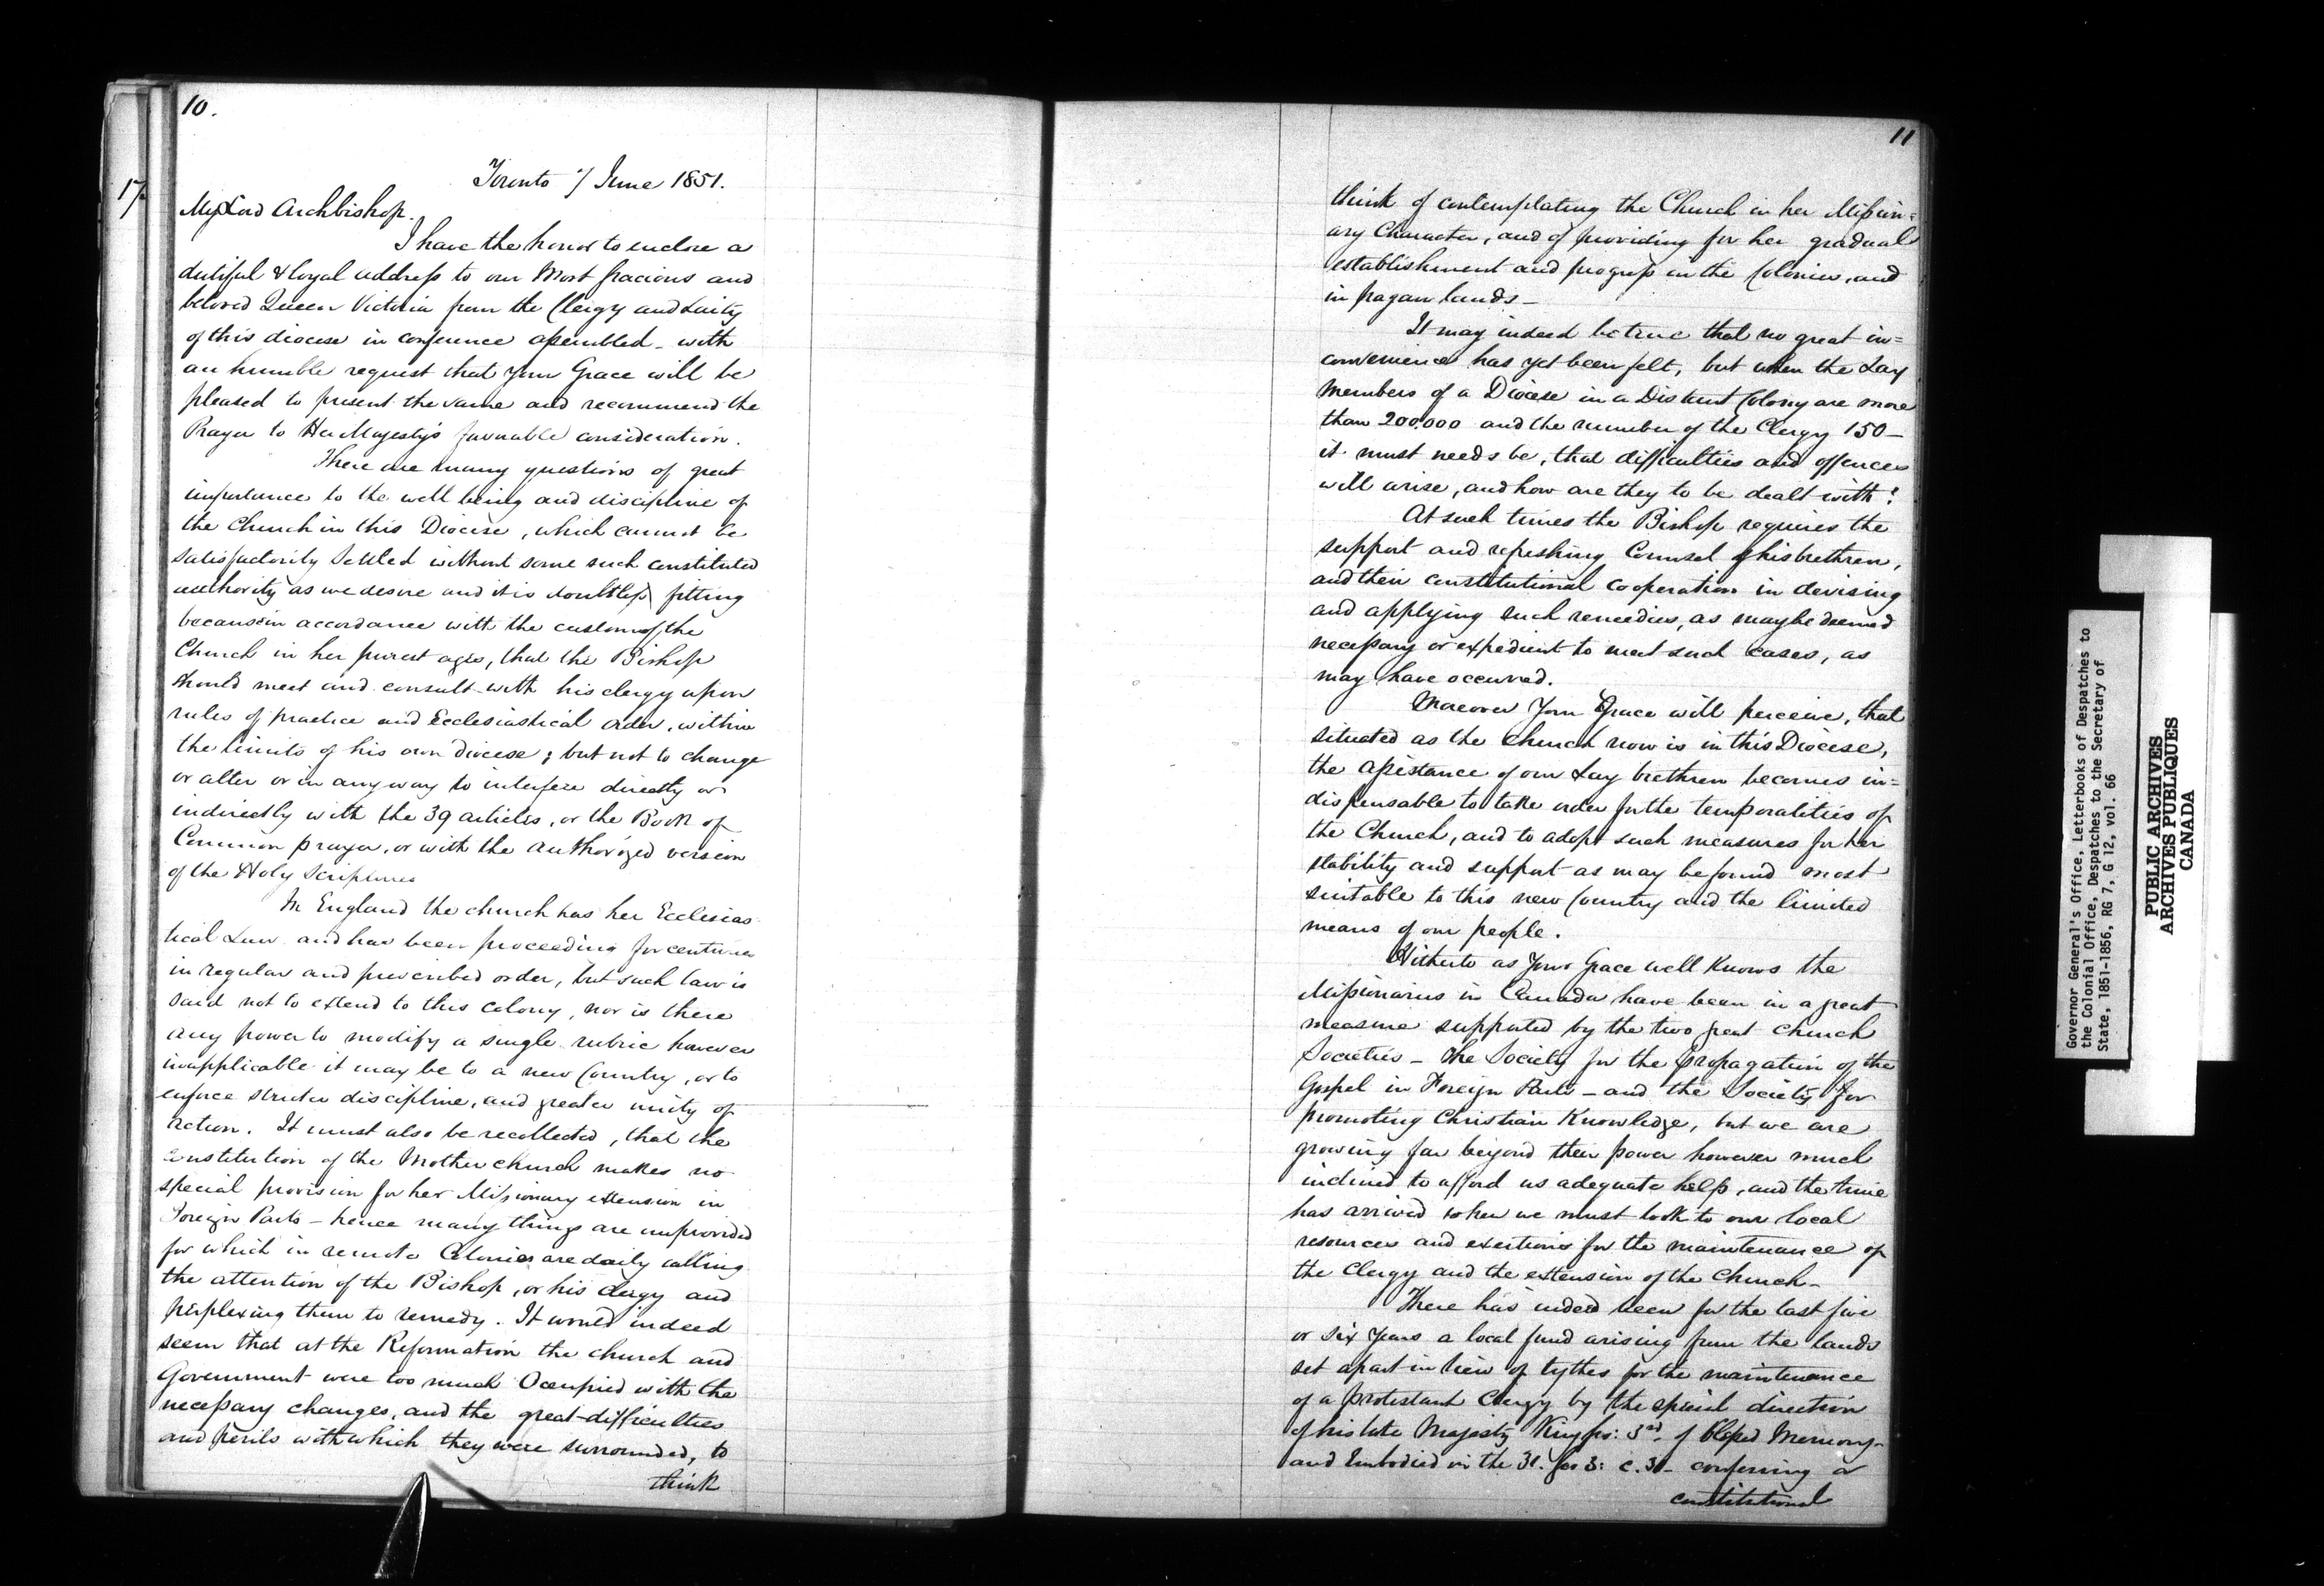 10.
17
Toronto 7 June 1851.
My Lord Archbishop.
I have the honor to enclose a
dutiful & loyal address to our Most Gracious and
beloved Queen Victoria from the Clergy and Laity
of this diocese in conference assembled - with
an humble request that Your Grace will be
pleased to present the same and recommend the
Prayer to Her Majesty's favorable consideration.
There are many questions of great
importance to the well being and discipline of
the Church in this Diocese, which cannot be
satisfactorily settled without some such constituted
authority as we desire and it is doubtless fitting
because in accordance with the custom of the
Church in her purest ages, that the Bishop
should meet and consult with his clergy upon
rules of practice and Ecclesiastical order, within
the limits of his own diocese; but not to change
or alter or in any way to interfere directly or
indirectly with the 39 articles, or the Book of
Common prayer, or with the authorized version
of the Holy Scriptures
In England the church has her Ecclesias
tical Law and has been proceeding for centuries
in regular and prescribed order, but such law is
said not to extend to this colony, nor is there
any power to modify a single rubric however
inapplicable it may be to a new Country, or to
enforce stricter discipline, and greater unity of
action. It must also be recollected, that the
constitution of the Mother church makes no
special provision for her Missionary extension in
Foreign Parts - hence many things are unprovided
for which in remote Colonies are daily calling
the attention of the Bishop, or his clergy and
perplexing them to remedy. It would indeed
seem that at the Reformation the church and
Government were too much Occupied with the
necessary changes, and the great difficulties
and perils with which they were surrounded, to
think
11
think of contemplating the Church in her Mission=
ary Character, and of providing for her gradual
establishment and progress in the Colonies, and
in pagan lands -
It may indeed be true that no great in=
convenience has yet been felt, but when the Lay
members of a Diocese in a Distant Colony are more
than 200.000 and the number of the Clergy 150 -
it must needs be, that difficulties and offences
will arise, and how are they to be dealt with?
At such times the Bishop requires the
support and refreshing Counsel of his brethren,
and their constitutional cooperation in devising
and applying such remedies, as may be deemed
necessary or expedient to meet such cases, as
may have occurred.
Moreover Your Grace will perceive, that
situated as the church now is in this Diocese,
the assistance of our Lay brethren becomes in=
dispensable to take order for the temporalities of
the Church, and to adopt such measures for her
stability and support as may be found most
suitable to this new Country and the limited
means of our people.
Hitherto as Your Grace well knows the
Missionaries in Canada have been in a great
measure supported by the two great church
Societies - the Society for the Propagation of the
Gospel in Foreign Parts - and the Society for
promoting Christian Knowledge, but we are
growing far beyond their power however much
inclined to afford us adequate help, and the time
has arrived when we must look to our local
resources and exertions for the maintenance of
the Clergy and the extension of the church -
There has indeed been for the last five
or six Years a local fund arising from the lands
set apart in lieu of tythes for the maintenance
of a protestant Clergy by the special direction
of his late Majesty King Geo: 3rd. of blessed Memory -
and Embodied in the 31. Geo 3: c. 31 - conferring a
constitutional
Governor General's Office, Letterbooks of Despatches to
the Colonial Office, Despatches to the Secretary of
State, 1851-1856, RG 7, G 12, vol. 66
PUBLIC ARCHIVES
ARCHIVES PUBLIQUES
CANADA